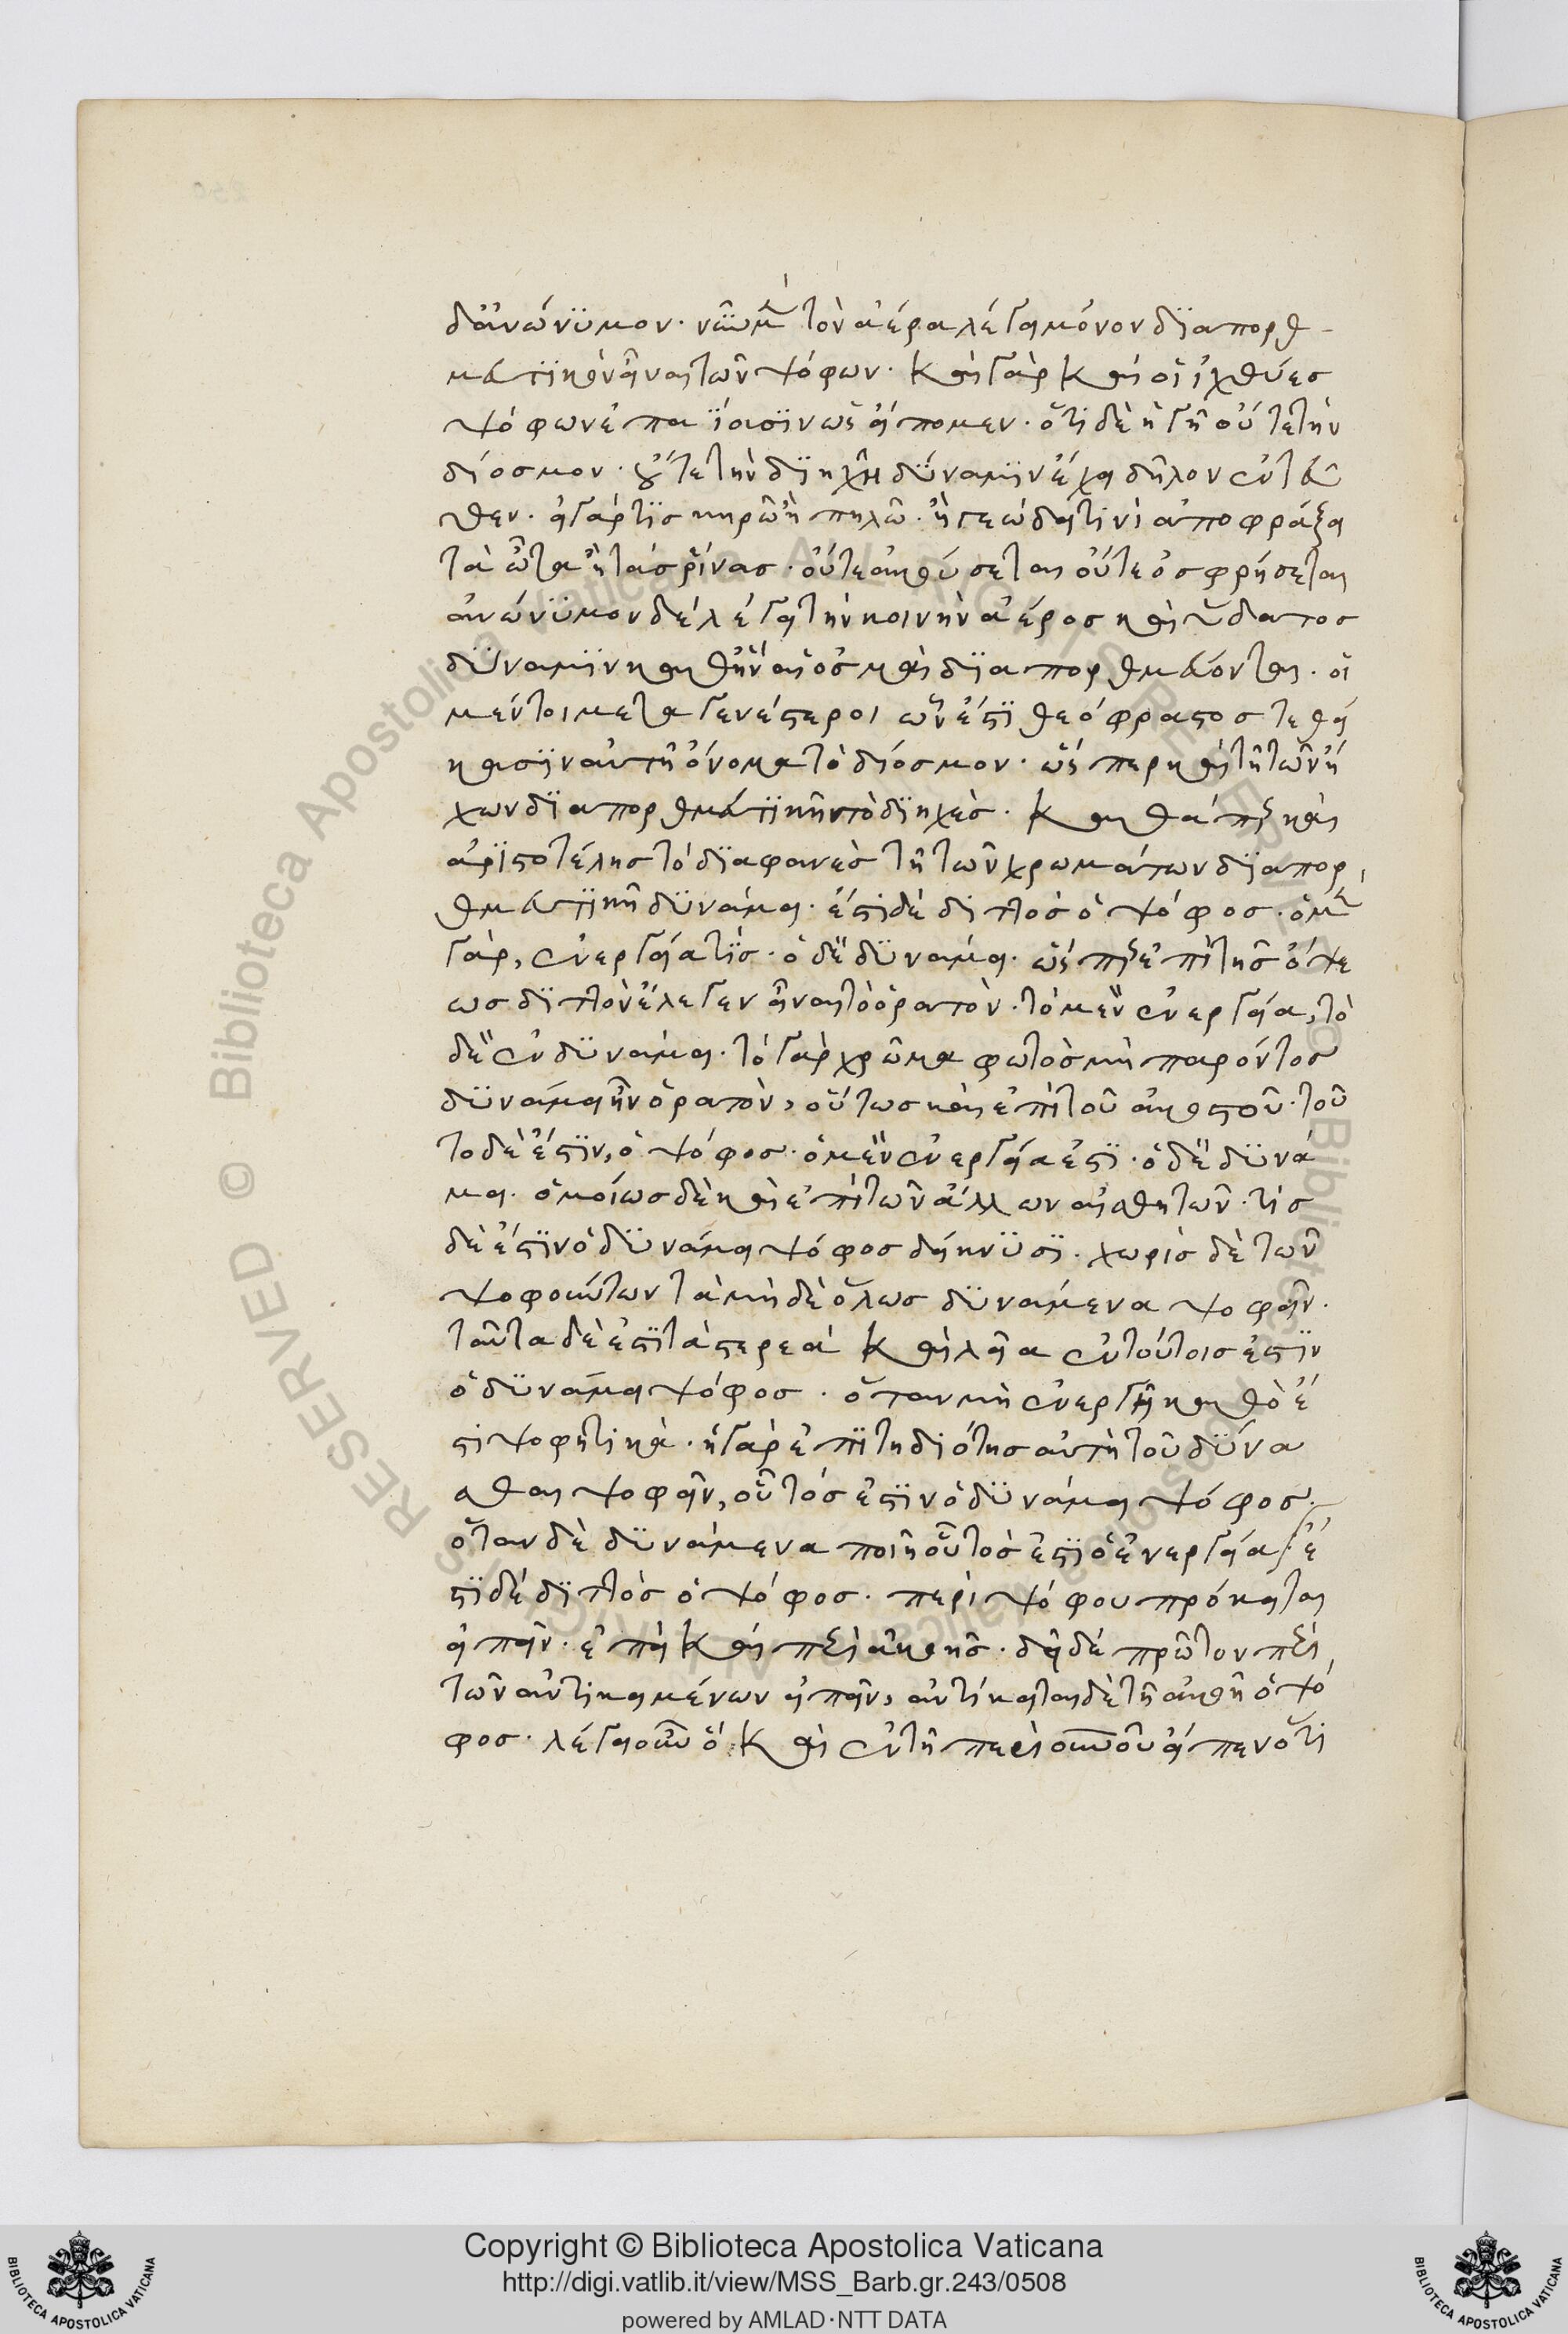 δ' ἀνώνυμον. νῦν μὲν τὸν ἀέρα λέγει μόνον διαπορθ-
μευτικὸν εἶναι τῶν ψόφων. καὶ γὰρ καὶ οἱ ἰχθύες
ψόφων ἐπαΐουσιν ὡς εἴπομεν. ὅτι δὲ ἡ γῆ οὔτε τὴν
δίοσμον. οὔτε τὴν διηχῆ δύναμιν ἔχει δῆλον ἐντεῦ
θεν. εἰ γάρ τις κηρῷ ἢ πηλῷ. ἢ στεώδει τινὶ ἀποφράξει
τὰ ὦτα ἢ τὰς ῥῖνας. οὔτε ἀκούσεται οὔτε ὀσφρήσεται
ἀνώνυμον δὲ λέγει τὴν κοινὴν ἀέρος καὶ ὕδατος
δύναμιν καθ' ἣν αἱ ὀσμαὶ διαπορθμεύονται. οἱ
μέντοι μεταγενέστεροι ὧν ἐστι θεόφραστος τεθεί
κασιν αὐτῇ ὄνομα τὸ δίοσμον. ὥσπερ καὶ τῇ τῶν ἤ
χων διαπορθμευτικῇ τὸ διηχὲς. καθάπερ καὶ
ἀριστοτέλης τὸ διαφανὲς τῇ τῶν χρωμάτων διαπορ
θμευτικῇ δυνάμει. ἔστι δὲ διπλὸς ὁ ψόφος. ὁ μὲν
γὰρ, ἐνεργείᾳ τίς. ὁ δὲ δυνάμει. ὥσπερ ἐπὶ τῆς ὄψε
ως διπλὸν ἔλεγεν εἶναι τὸ ὁρατὸν. τὸ μὲν ἐνεργείᾳ, τὸ
δὲ ἐν δυνάμει. τὸ γὰρ χρῶμα φωτὸς μὴ παρόντος
δυνάμει ἦν ὁρατὸν, οὕτως καὶ ἐπὶ τοῦ ἀκουστοῦ. τοῦ
το δὲ ἐστιν, ὁ ψόφος. ὁ μὲν ἐνεργείᾳ ἐστι. ὁ δὲ δυνά
μει. ὁμοίως δὲ καὶ ἐπὶ τῶν ἄλλων αἰσθητῶν. τίς
δὲ ἐστιν ὁ δυνάμει ψόφος δείκνυσι. χωρὶς δὲ τῶν
ψοφούντων τὰ μὴ δὲ ὅλως δυνάμενα ψοφεῖν.
ταῦτα δὲ ἐστι τὰ στερεά καὶ λεῖα ἐν τούτοις ἐστιν
ὁ δυνάμει ψόφος. ὅταν μὴ ἐνεργῇ καθὸ ἐ
στι ψοφητικὰ. ἡ γὰρ ἐπιτηδιότης αὐτὴ τοῦ δύνα
σθαι ψοφεῖν, οὗτός ἐστιν ὁ δυνάμει ψόφος.
ὅταν δὲ δυνάμενα ποιῇ οὗτός ἐστι ὁ ἐνεργείᾳ ἔ
στι δὲ διπλὸς ὁ ψόφος. περὶ ψόφου πρόκειται
εἰπεῖν. ἐπεὶ καὶ περὶ ἀκοῆς. δεῖ δὲ πρῶτον περὶ
τῶν ἀντικειμένων εἰπεῖν, ἀντίκειται δὲ τῇ ἀκοῇ ὁ ψό
φος. λέγει οὖν ὅ καὶ ἐν τῇ περὶ εἶπεν ὅτι